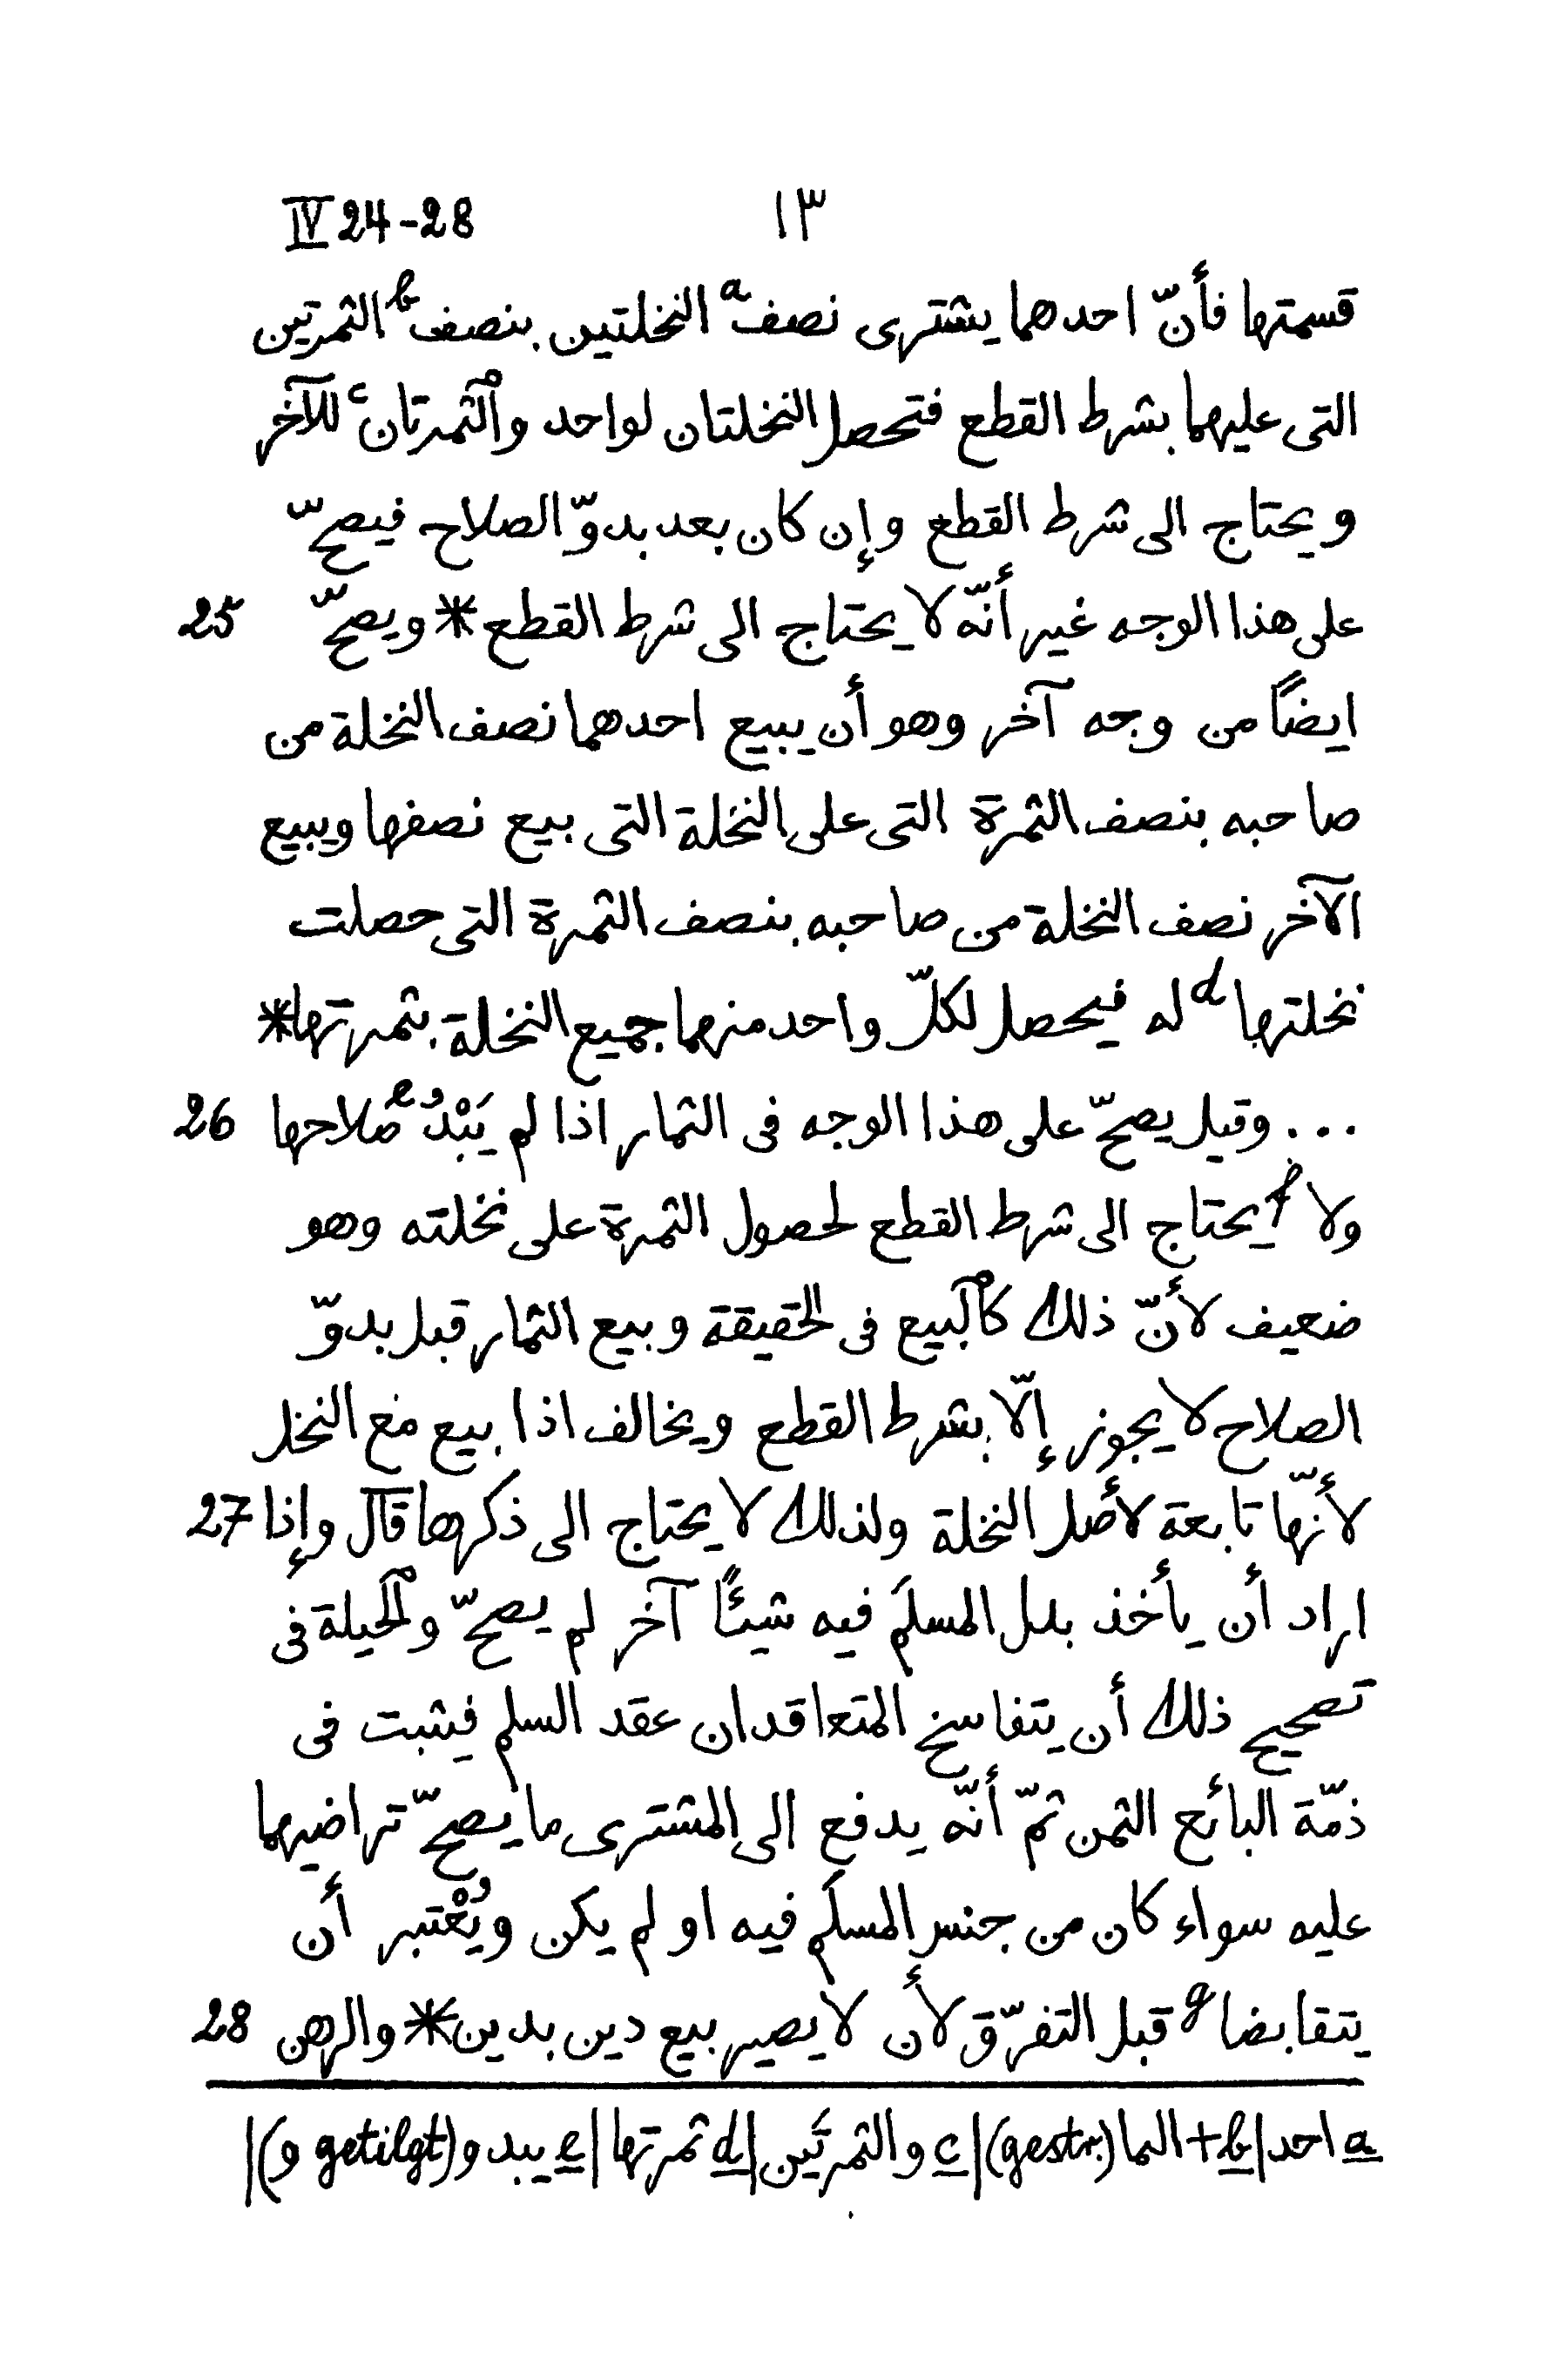 IV 24-28 ١٣
قسمتها فأنّ احدهما يشترى نصفᵃ النخلتين بنصفᵇ الثمرتين
التى عليهما بشرط القطع فتحصل النخلتان لواحد وٱلثمرتانᶜ للآخر
ويحتاج الى شرط القطع وإن كان بعد بدوّ الصلاح فيصحّ
على هذا الوجه غير أنّه لا يحتاج الى شرط القطع * ويصحّ 25
ايضًا من وجه آخر وهو أن يبيع احدهما نصف النخلة من
صاحبه بنصف الثمرة التى على النخلة التى بيع نصفها ويبيع
الآخر نصف النخلة من صاحبه بنصف الثمرة التى حصلت
نخلتهاᵈ له فيحصل لكلّ واحد منهما جميع النخلة بثمرتها *
... وقيل يصحّ على هذا الوجه فى الثمار اذا لم يَبْدُᵉ صلاحها 26
ولاᶠ يحتاج الى شرط القطع لحصول الثمرة على نخلته وهو
ضعيف لأنّ ذلك كٱلبيع فى الحقيقة وبيع الثمار قبل بدوّ
الصلاح لا يجوز إلّا بشرط القطع ويخالف اذا بيع مع النخل
لأنّها تابعة لأصل النخلة ولذلك لا يحتاج الى ذكرها قال وإذا 27
اراد أن يأخذ بدل المسلَم فيه شيئًا آخر لم يصحّ وٱلحيلة فى
تصحيح ذلك أن يتفاسخ المتعاقدان عقد السلم فيثبت فى
ذمّة البائع الثمن ثمّ أنّه يدفع الى المشترى ما يصحّ تراضيهما
عليه سواء كان من جنس المسلَم فيه او لم يكن ويُعْتبر أن
يتقابضاᵍ قبل التفرّق لأن لا يصير بيع دين بدين * والرهن 28
a احد | b + الما (gestr.) | c والثمرتَين | d ثمرتها | e يبدو (و getilgt) |